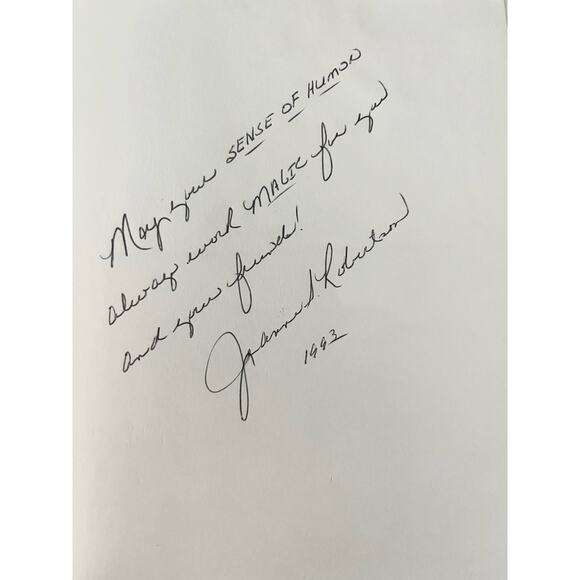 May your SENSE OF HUMOR
always work MAGIC for you
and your friends!
Joanne S. Robertson
1993